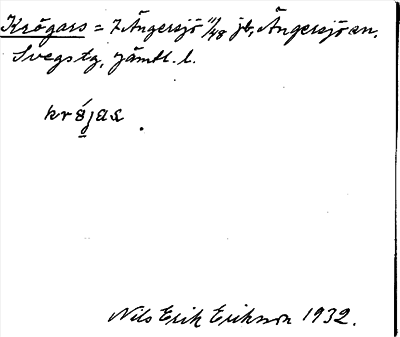 Krögars = 7 Ängersjö 11/48 jb, Ängersjö sn,
Svegs tg, Jämtl. l.
krájas.
Nils Erik Erikson 1932.